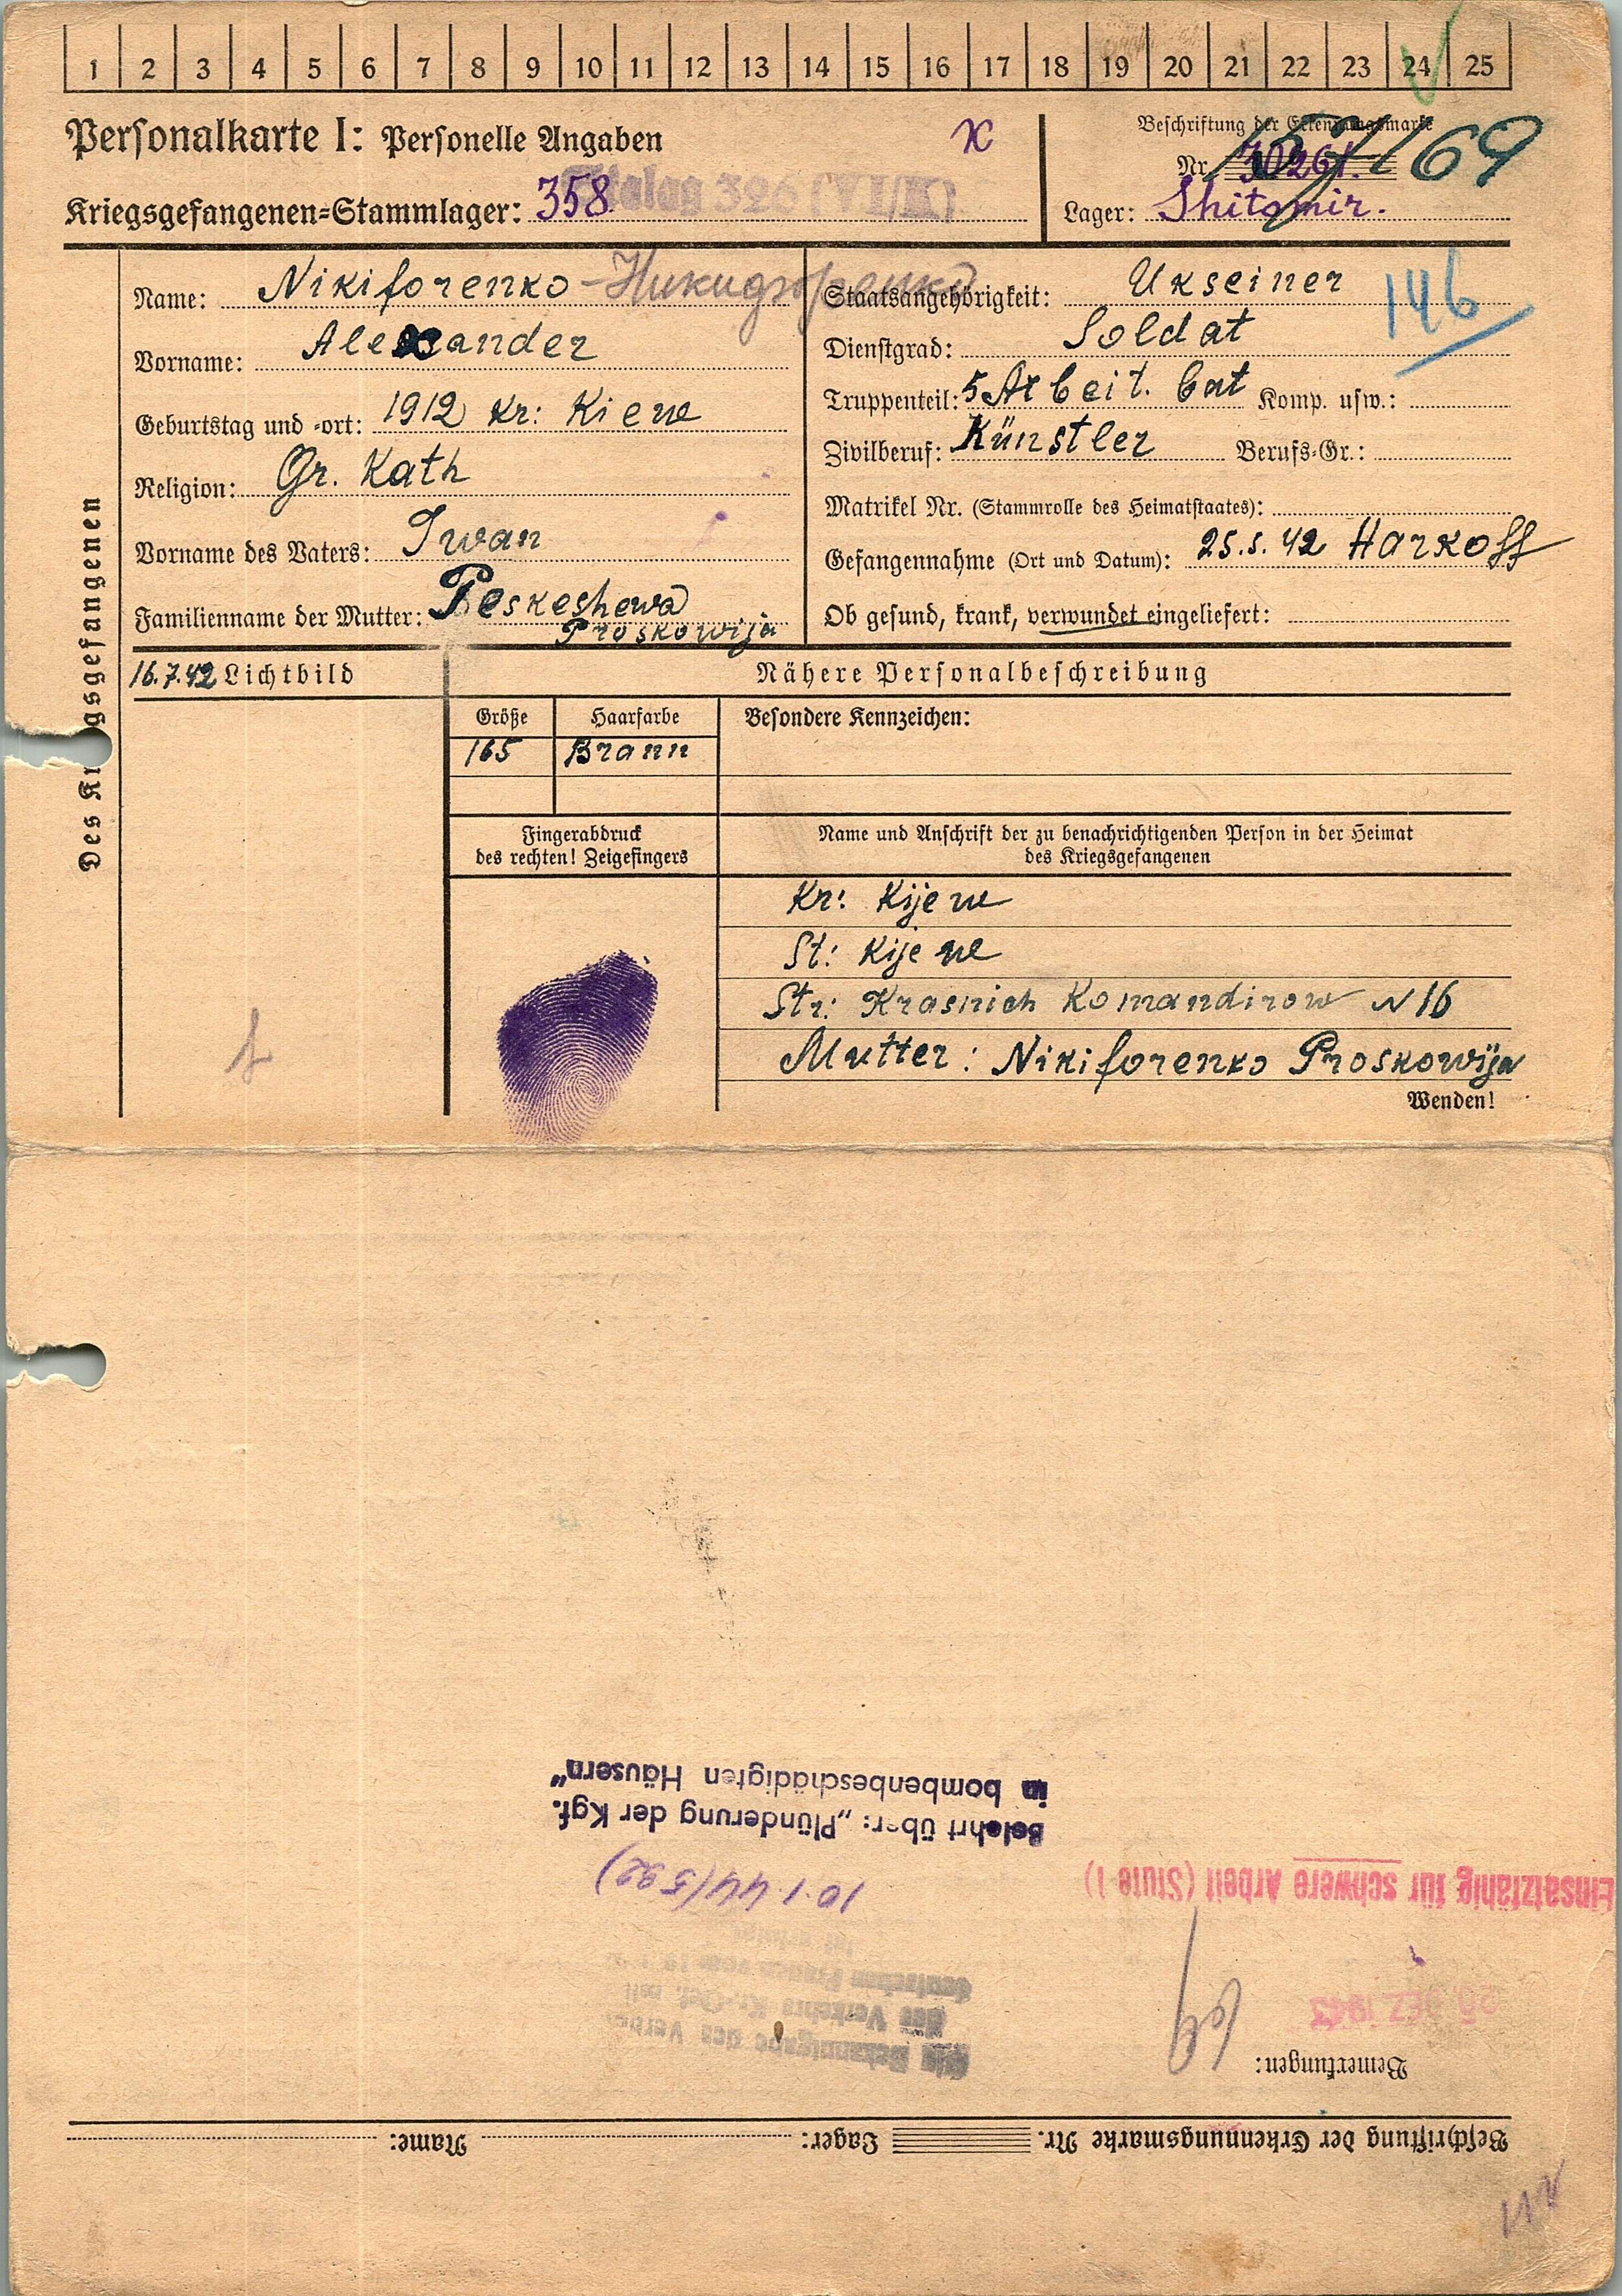 1 2 3 4 5 6 7 8 9 10 11 12 13 14 15 16 17 18 19 20 21 22 23 24 25
Personalkarte I: Personelle Angaben
x
Beschriftung der Erkennungsmarke
Nr. 30261.
157169
Kriegsgefangenen=Stammlager: 358. Stalag 326 (VI/K)
Lager: Shitomir.
Des Kr gsgefangenen
Name: Nikiforenko - Никифоренко
Vorname: Alexander
Geburtstag und -ort: 1912 Kr: Kiew
Religion: Gr. Kath
Vorname des Vaters: Iwan
Familienname der Mutter: Peskeshewa
Proskowija
Staatsangehörigkeit: Ukreiner
146
Dienstgrad: Soldat
Truppenteil: 5 Arbeit. bat Komp. usw.:
Zivilberuf: Künstler Berufs-Gr.:
Matrikel Nr. (Stammrolle des Heimatstaates):
Gefangennahme (Ort und Datum): 25.5.42 Harkoff
Ob gesund, krank, verwundet eingeliefert:
16.7.42 Lichtbild
Nähere Personalbeschreibung
Größe Haarfarbe Besondere Kennzeichen:
165 Brann
Fingerabdruck
des rechten! Zeigefingers
Name und Anschrift der zu benachrichtigenden Person in der Heimat
des Kriegsgefangenen
Kr: Kijew
St: Kijew
Str: Krasnich Komandirow N 16
Mutter: Nikiforenko Proskowija
Wenden!
Beschriftung der Erkennungsmarke Nr. Lager: Name:
Bemerkungen:
25 DEZ 1943
Die Bekanntgabe des Verbo
des Verkehrs Kr.-Gef. mit
deutschen Frauen vom
ist erfolgt
Einsatzfähig für schwere Arbeit (Stufe I)
10.1.44 (592)
Belehrt über: „Plünderung der Kgf.
in bombenbeschädigten Häusern"